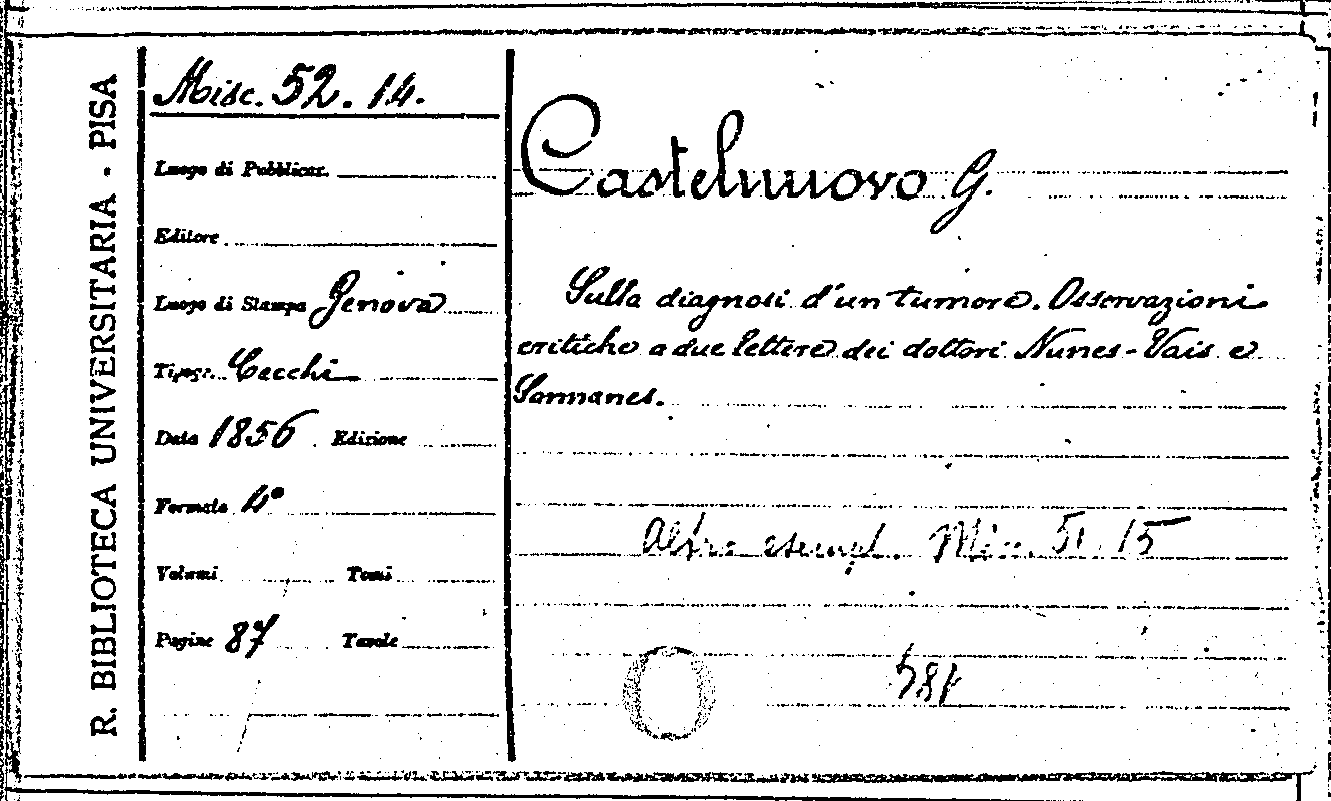 R. BIBLIOTECA UNIVERSITARIA - PISA
Misc. 52. 14.
Luogo di Pubblicaz.
Editore
Luogo di Stampa Genova
Tipogr. Cecchi
Data 1856 Edizione
Formato 4°
Volumi Tomi
Pagine 87 Tavole
Castelnuovo G.
Sulla diagnosi d'un tumore. Osservazioni
critiche a due lettere dei dottori Nunes-Vais e
Sonnanes.
Altro esempl. Misc. 51. 15